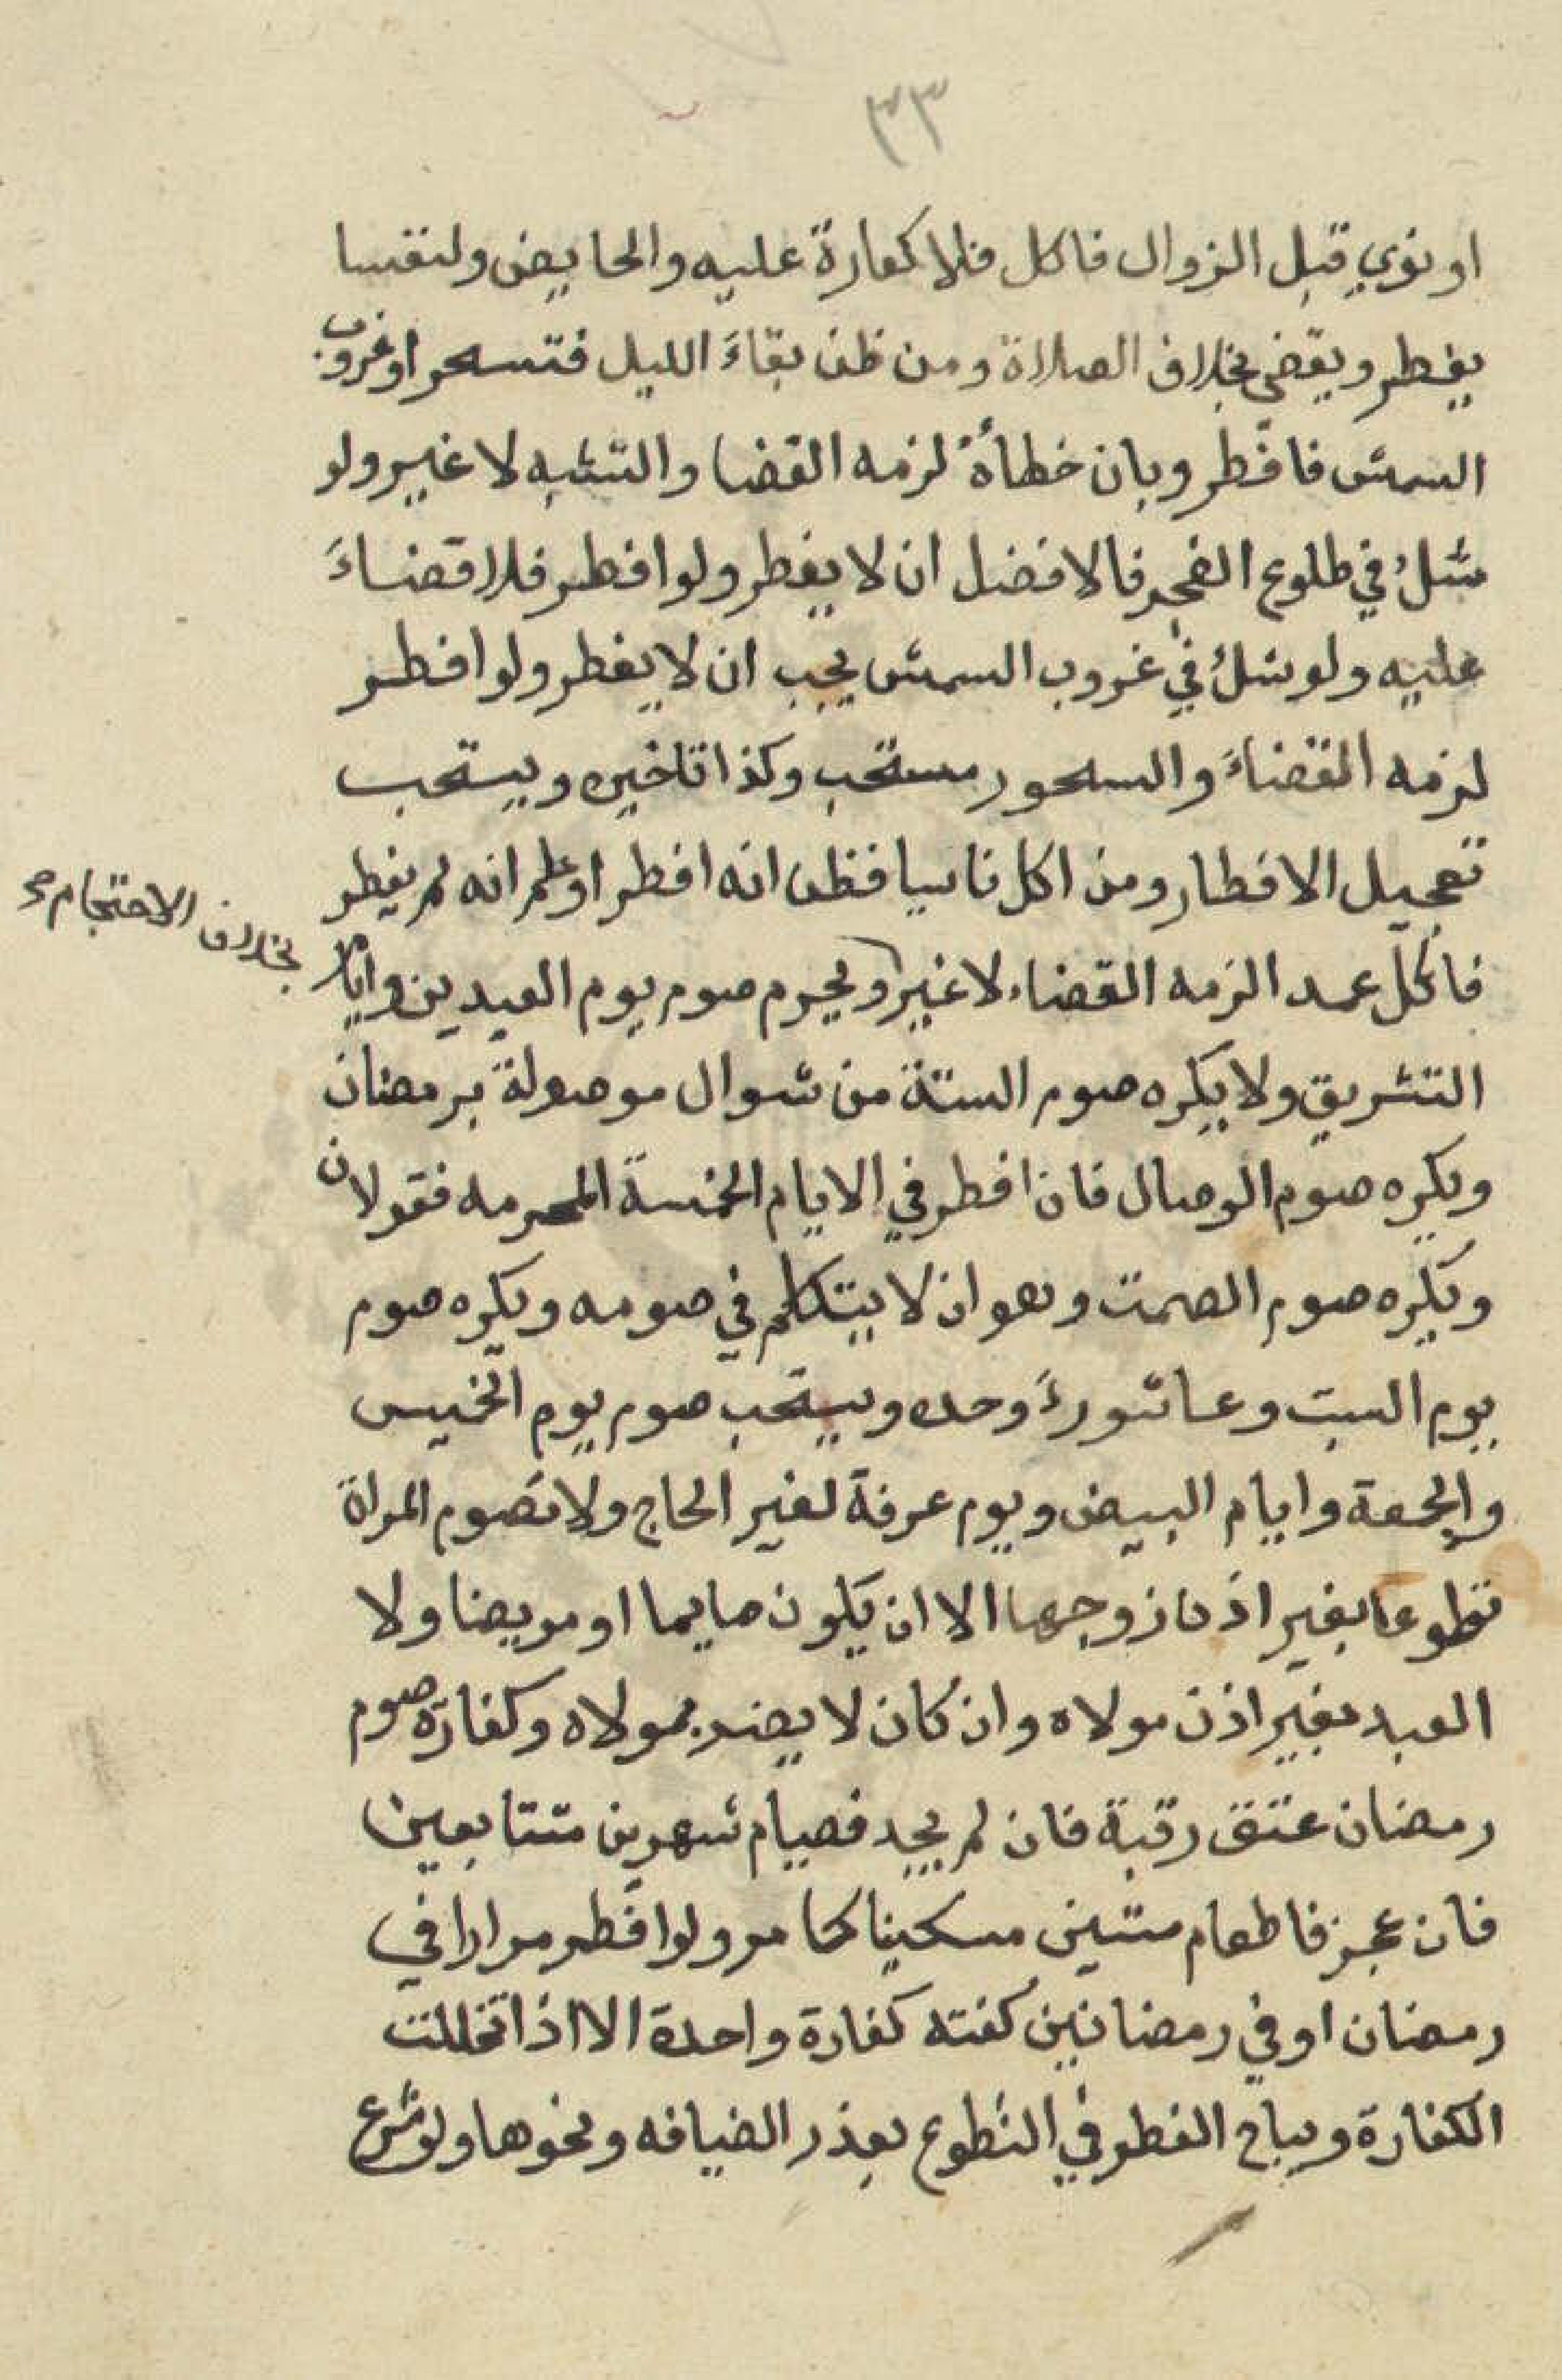 ٣٣
او نوي قبل الزوال فاكل فلا كفارة عليه والحايض ولنفسا
يفطر ويقضي بخلاف الصلاة ومن ظن بقاءَ الليل فتسحر او غروب
السمش فافطر وبان خطأهُ لزمه القضا والتشبه لا غير ولو
شك في طلوع الفجر فالافضل ان لا يفطر ولو افطر فلا قضاءَ
عليه ولو شك في غروب السمش يجب ان لا يفطر ولو افطر
لزمه القضاءَ والسحور مستحب وكذا تاخيره ويستحب
تعجيل الافطار ومن اكل ناسيا فظن انه افطر او علم انه لم يفطر
فاكل عمدا لزمه القضاء لا غير ويحرم صوم يوم العيدين وايام
بخلاف الاحتجام صح
التشريق ولا يكره صوم الستة من شوال موصولة برمضان
ويكره صوم الوصال فان افطر في الايام الخمسة المحرمه فقولان
ويكره صوم الصمت وهو ان لا يتكلم في صومه ويكره صوم
يوم السبت وعاشورءَ وحده ويستحب صوم يوم الخميس
والجمعة وايام البيض ويوم عرفة لغير الحاج ولا تصوم المراة
تطوعا بغير اذن زوجها الا ان يكون صايما او مريضا ولا
العبد بغير اذن مولاه وان كان لا يضر بمولاه وكفارة صوم
رمضان عتق رقبة فان لم يجد فصيام شهرين متتابعين
فان عجز فاطعام ستين مسكينا كما مر ولو افطر مرارا في
رمضان او في رمضانين كفته كفارة واحدة الا اذا تخللت
الكفارة ويباح الفطر في التطوع بعذر الضيافه ونحوها ولو شرع